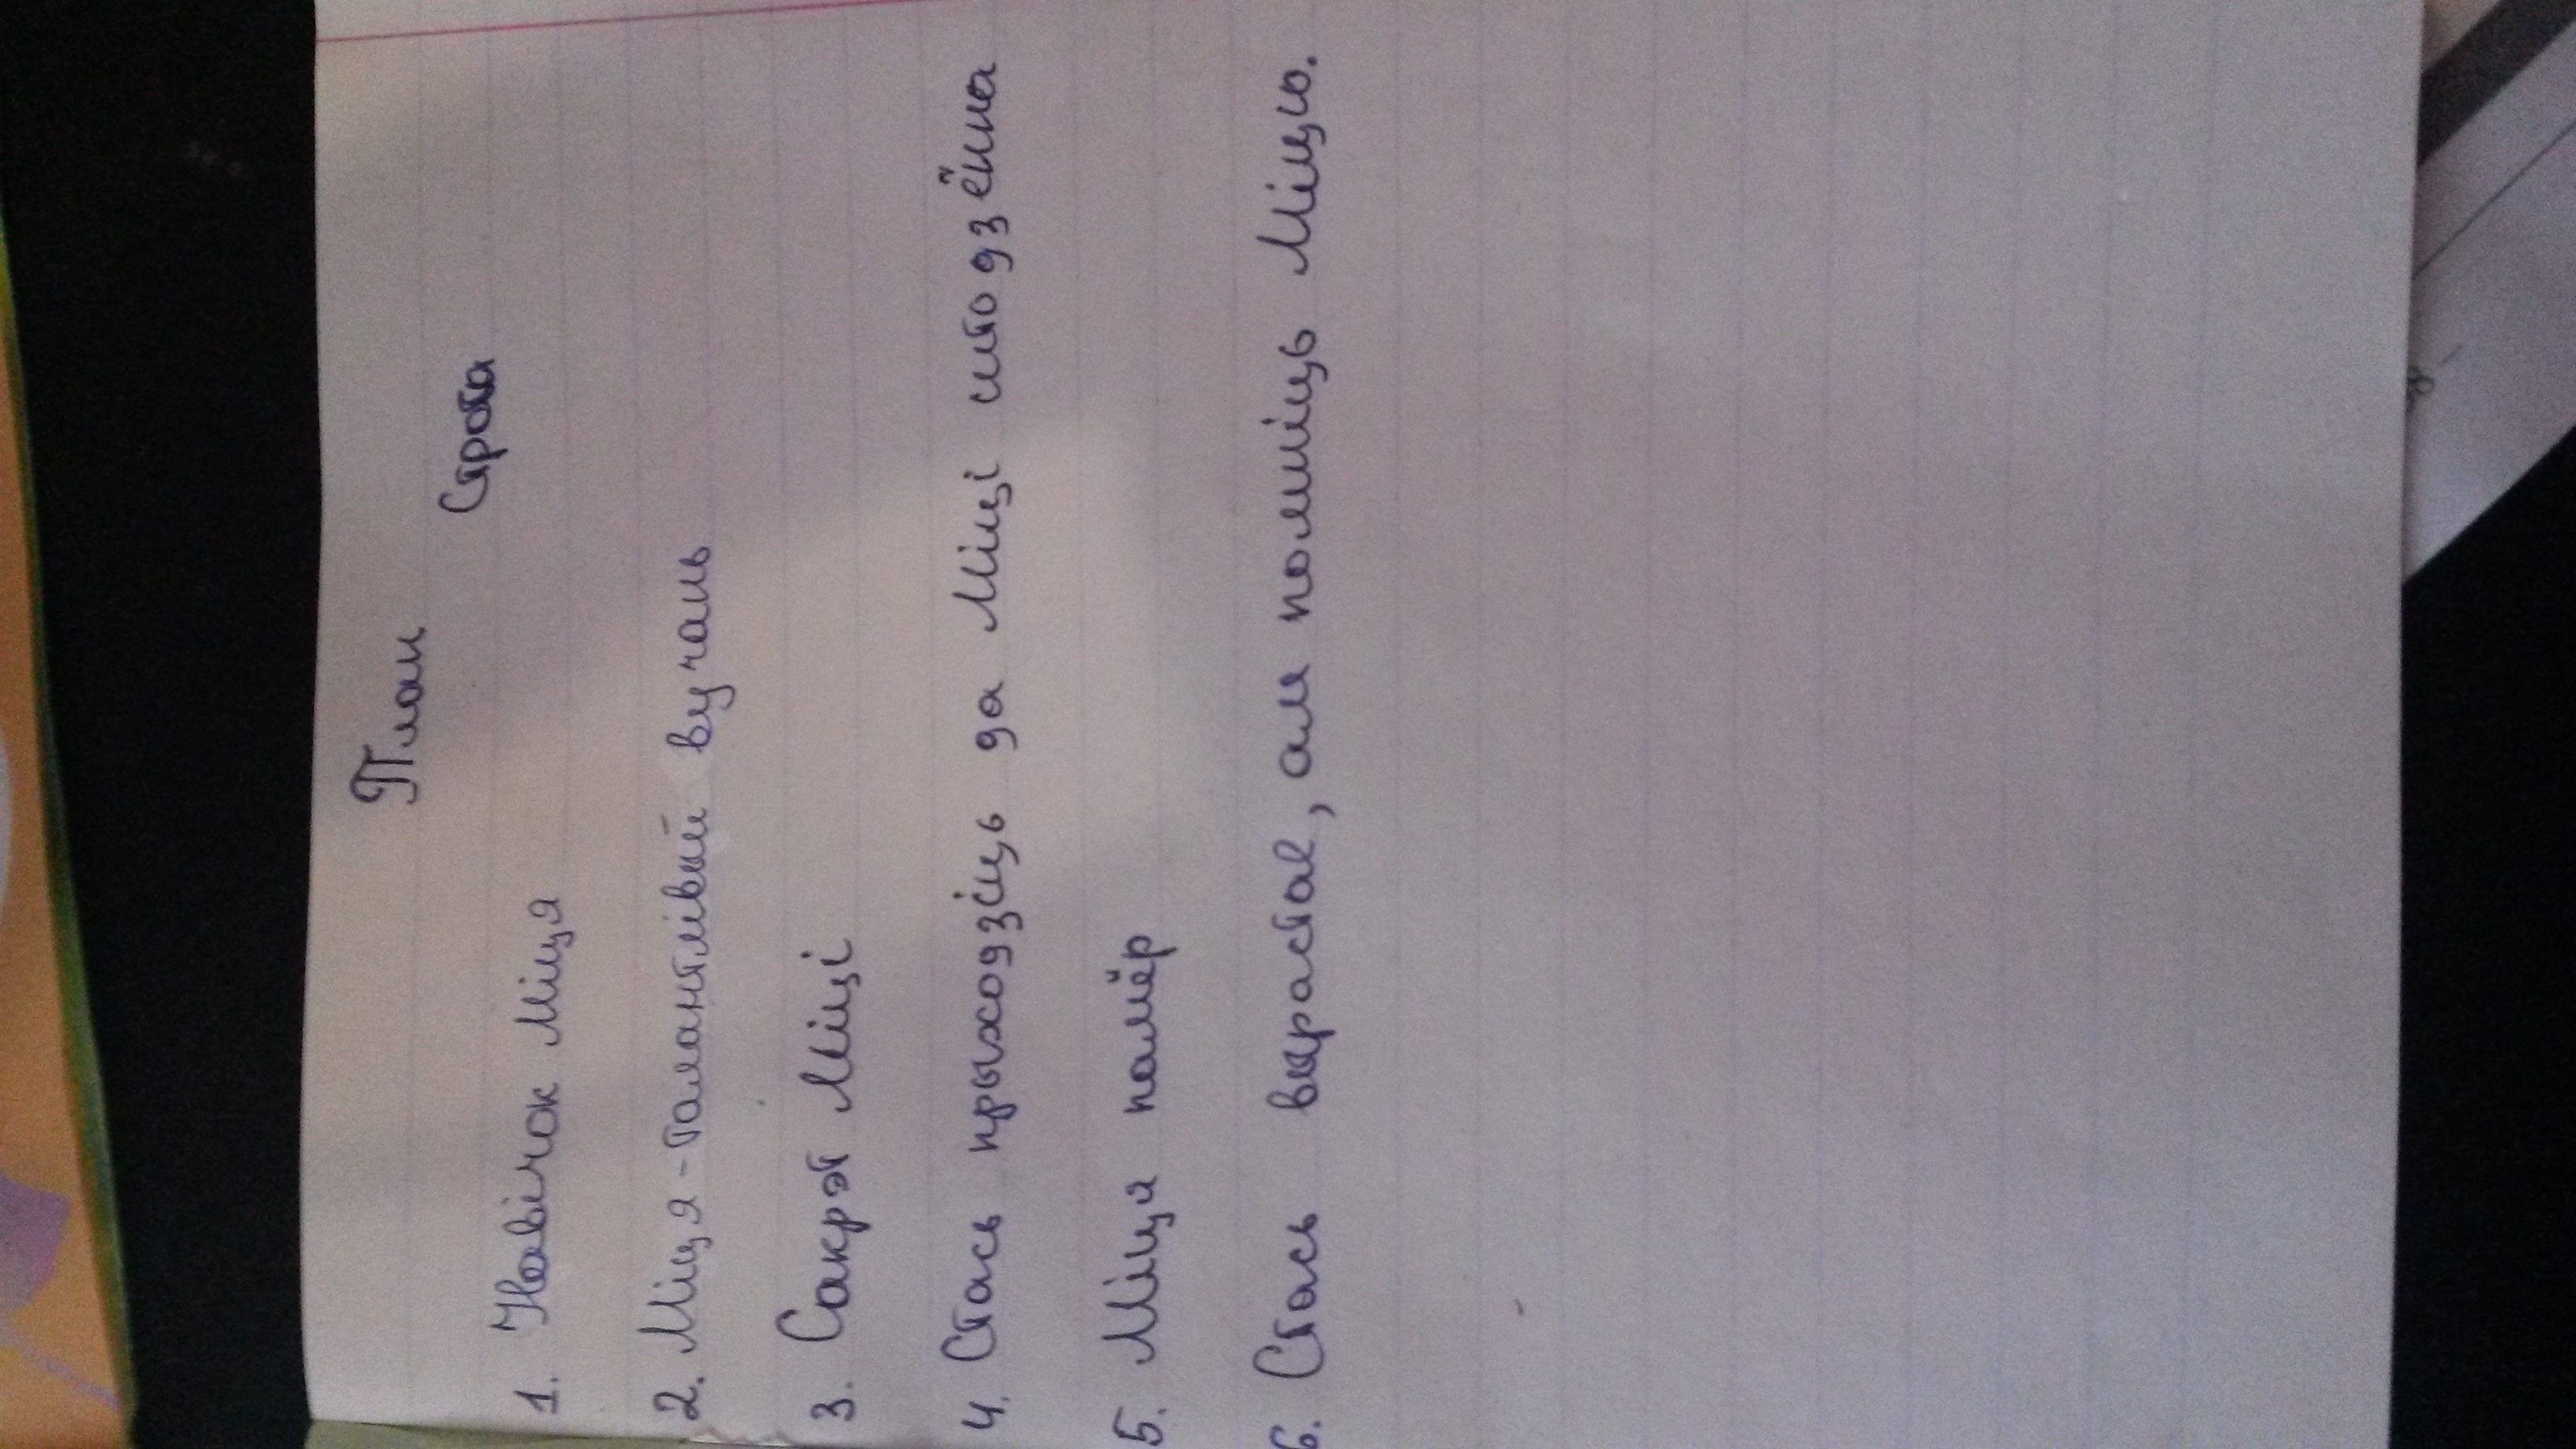 План
Страта
1. Навічок Міця
2. Міця - талантлівый вучань
3. Сакрэт Міці
4. Стась прыходзіць да Міці штодзённа
5. Міця памёр
6. Стась вырастае, але помніць Міцю.